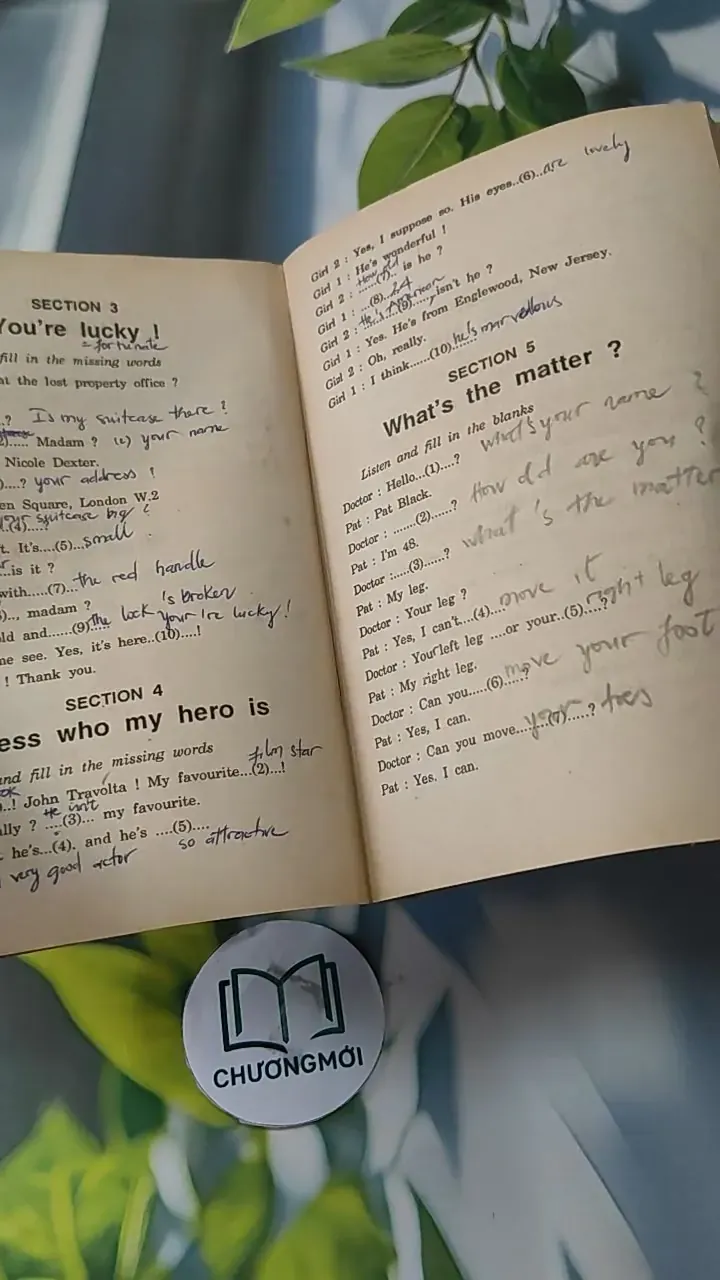 SECTION 3
You're lucky !
= fortunate
fill in the missing words
at the lost property office ?
..? Is my suitcase there ?
..... Madam ? (2) your name
Nicole Dexter.
)....? your address !
en Square, London W.2
suitcase big ?
..(4)....?
t. It's....(5)...small.
...is it ?
with.....(7)...the red handle
).., madam ?
ld and......(9)the lock 's broken
me see. Yes, it's here..(10)....! You're lucky!
! Thank you.
SECTION 4
ess who my hero is
and fill in the missing words
..! John Travolta ! My favourite...(2)...! film star
ally ? ....(3)... my favourite. He isn't
he's...(4). and he's ....(5)....
very good actor so attractive
Girl 2 : Yes, I suppose so. His eyes..(6)..are lovely
Girl 1 : He's wonderful !
Girl 2 : ......(7).. is he ? How old
Girl 1 : ...(8)..24
Girl 2 : ....(9)....., isn't he ? He's American
Girl 1 : Yes. He's from Englewood, New Jersey.
Girl 2 : Oh, really.
Girl 1 : I think......(10)...... he's marvellous
SECTION 5
What's the matter ?
Listen and fill in the blanks
Doctor : Hello...(1)....? what's your name ?
Pat : Pat Black.
Doctor : .......(2)......? How old are you ?
Pat : I'm 48.
Doctor :.....(3)......? what 's the matter
Pat : My leg.
Doctor : Your leg ?
Pat : Yes, I can't...(4)....move it
Doctor : Your left leg ....or your..(5)....? right leg
Pat : My right leg.
Doctor : Can you.....(6).....? move your foot
Pat : Yes, I can.
Doctor : Can you move....(7).....? your toes
Pat : Yes. I can.
CHƯƠNGMỚI